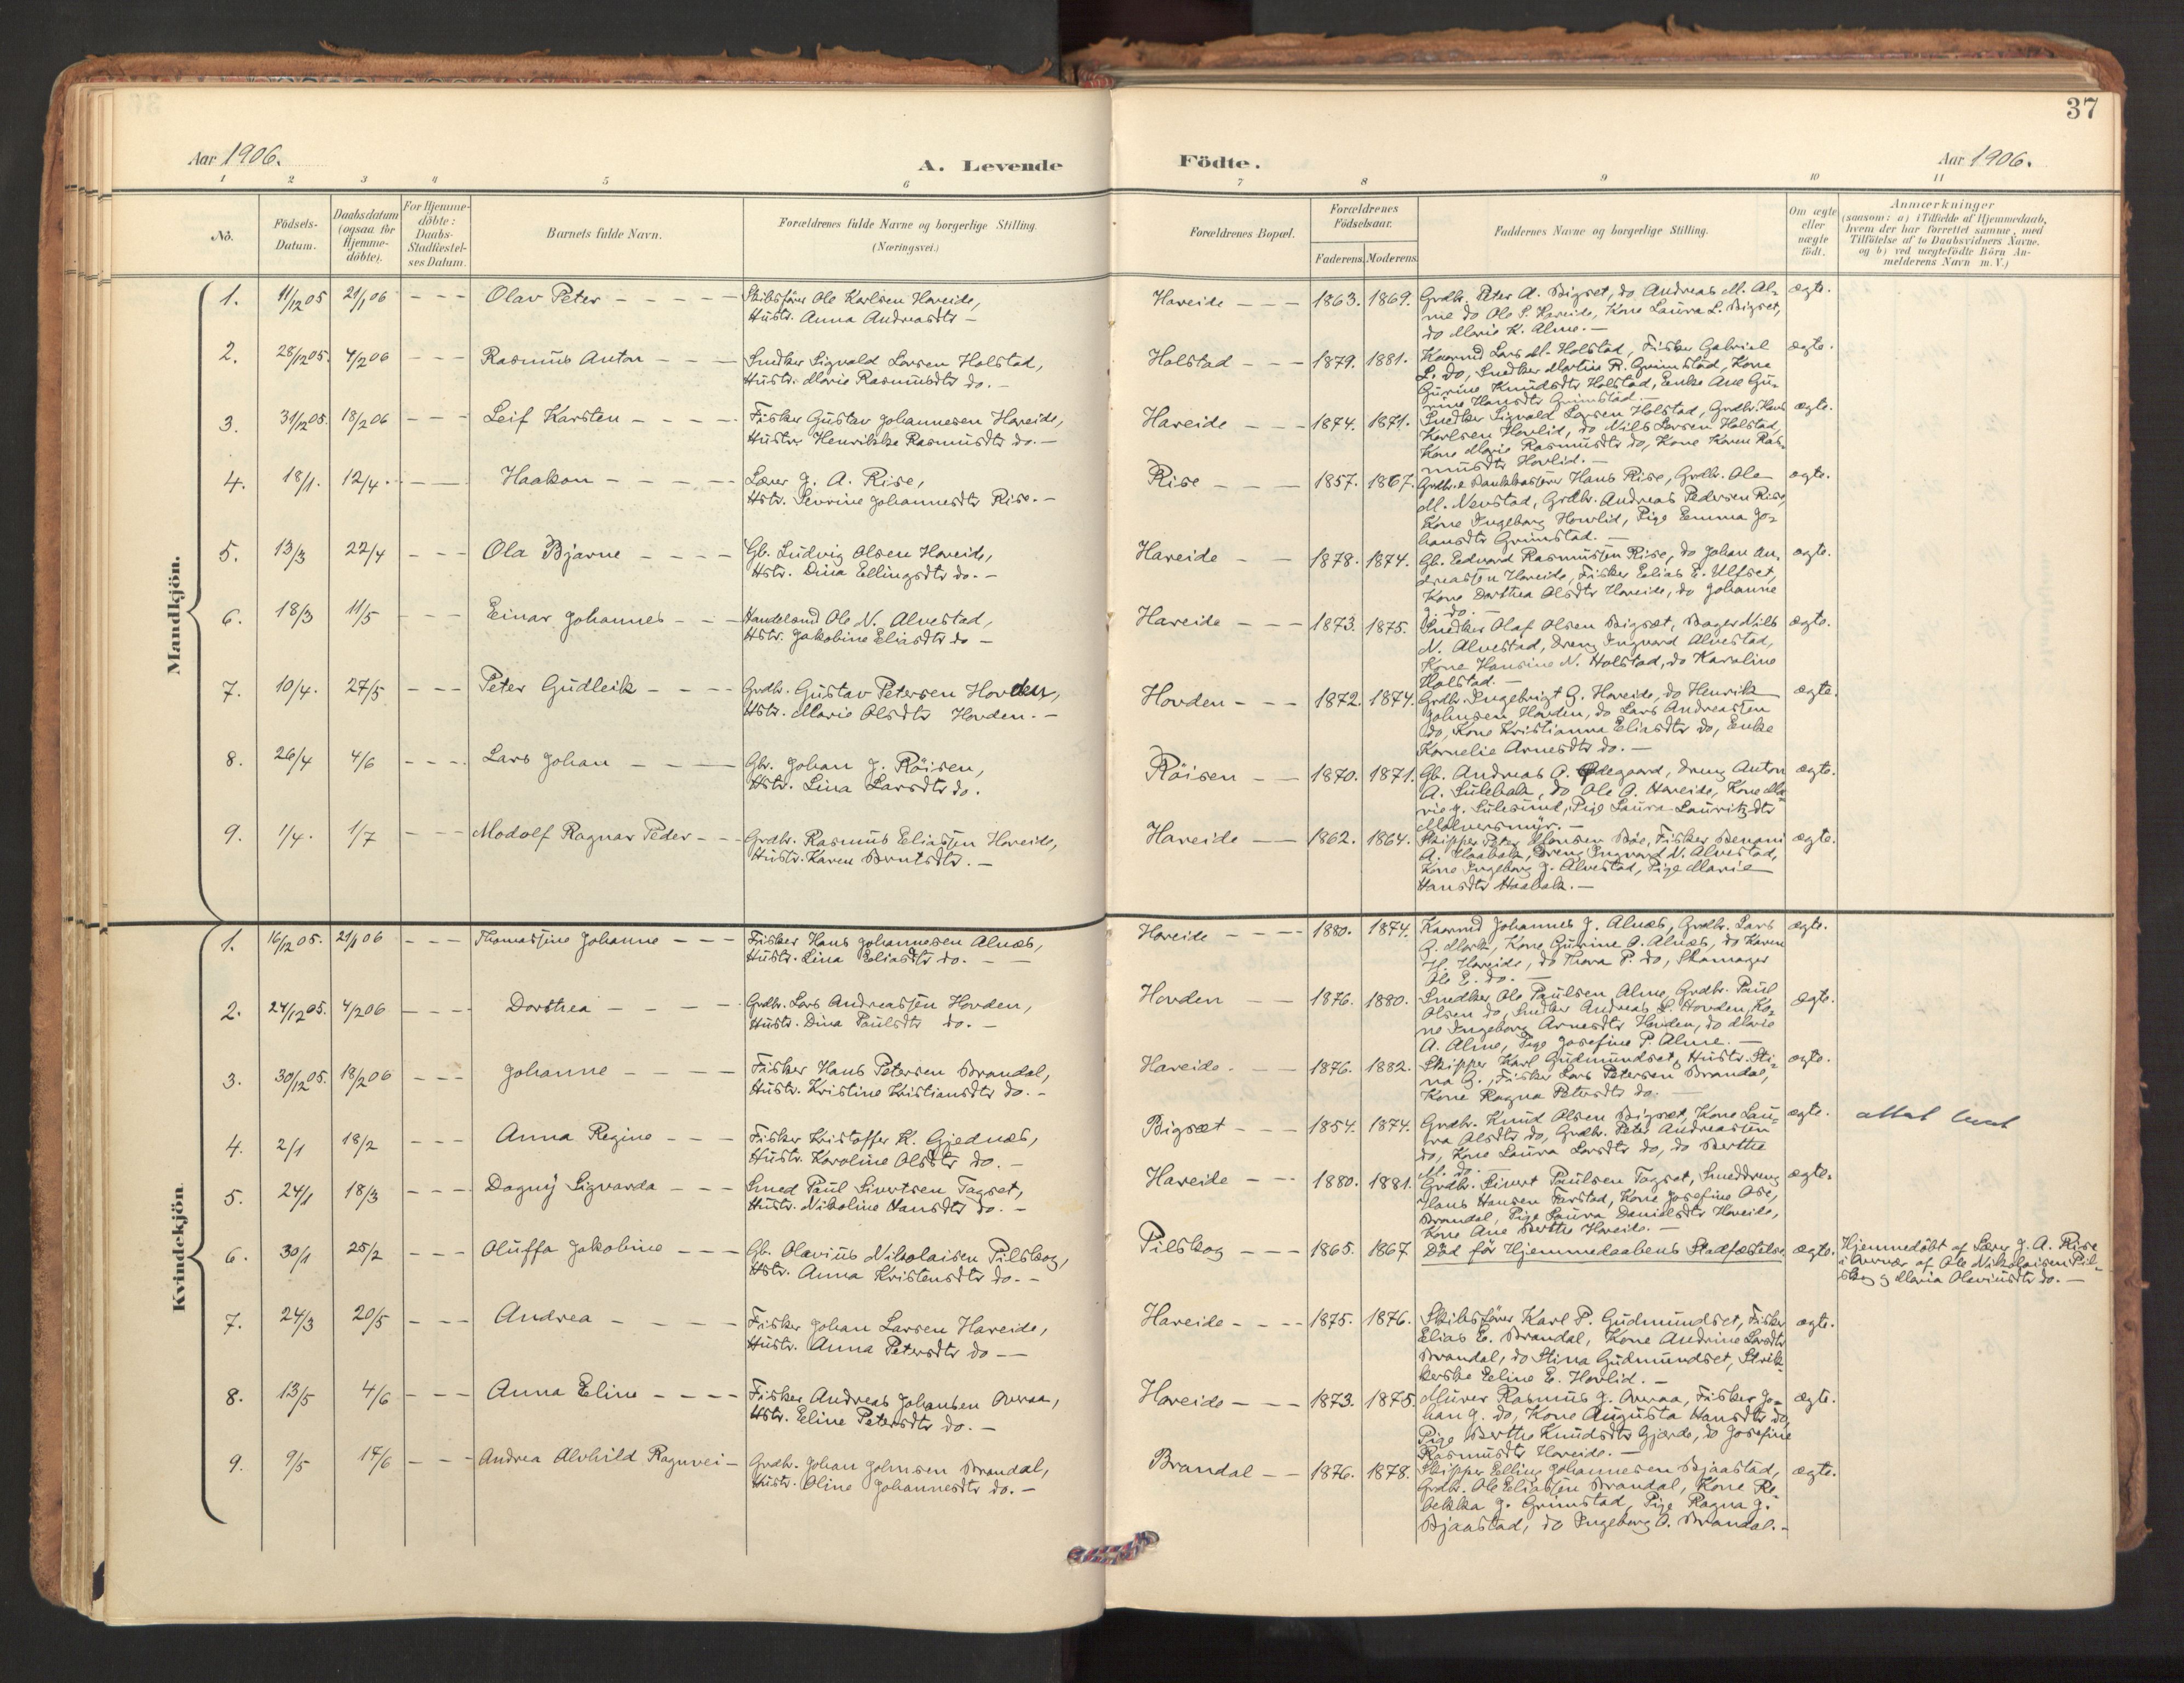 37
Aar 1906.
A. Levende
Födte.
Aar 1906.
1 2 3 4 5 6 7 8 9 10 11
No.
Födsels-
Datum.
Daabsdatum
(ogsaa for
Hjemme-
döbte).
For Hjemme-
döbte:
Daabs-
Stadfæstel-
ses Datum.
Barnets fulde Navn.
Forældrenes fulde Navne og borgerlige Stilling.
(Næringsvei.)
Forældrenes Bopæl.
Forældrenes
Födselsaar.
Faderens. Moderens.
Faddernes Navne og borgerlige Stilling.
Om ægte
eller
uægte
födt.
Anmærkninger
(saasom: a) i Tilfælde af Hjemmedaab,
hvem der har forrettet samme, med
Tilföielse af to Daabsvidners Navne.
og b) ved uægtefödte Börn An-
melderens Navn m. V.)
Mandkjön.
1. 11/12 05 21/1 06 - - - Olav Peter - - - - Skibsförer Ole Karlsen Hareide,
Hustr. Anna Andreasdtr -
Hareide - - - 1863. 1869. Grdbr. Peter A. Bigset, do Andreas M. Al-
me do Ole P. Hareide, Kone Laura L. Bigset,
do Marie K. Alme. -
ægte.
2. 28/12 05. 4/2 06 - - - Rasmus Anton - - - Snedker Sigvald Larsen Holstad,
Hustr. Marie Rasmusdtr do. -
Holstad - - - 1879. 1881. Kaarmd Lars M. Holstad, Fisker Gabriel
L. do, Snedker Martin R. Grimstad, Kone
Gurine Knudsdtr Holstad, Enke Ane Gu-
rine Hansdtr Grimstad. -
ægte.
3. 31/12 05. 18/2 06 - - - Leif Karsten - - - - Fisker Gustav Johannesen Hareide,
Hustr. Henrikke Rasmusdtr do. -
Hareide - - - 1874. 1871. Snedker Sigvald Larsen Holstad, Grdbr. Hans
Karlsen Hovlid, do Nils Larsen Holstad,
Kone Marie Rasmusdtr do, Kone Karen Ras-
musdtr Hovlid. -
ægte.
4. 18/1. 12/4. - - Haakon - - - - Lærer J. A. Rise,
Hstr. Severine Johannesdtr Rise. -
Rise - - - 1857. 1867. Grdbr. & Bankkasserer Hans Rise, Grdbr. Ole
M. Nevstad, Grdbr. Andreas Pedersen Rise,
Kone Ingeborg Hovlid, Pige Emma Jo-
hansdtr Grimstad. -
ægte.
5. 13/3 22/4 - - - Ola Bjarne - - - - Gb. Ludvig Olsen Hareide,
Hstr. Dina Ellingsdtr do. -
Hareide - - 1878. 1874. Gb. Edvard Rasmussen Rise, do Johan An-
dreassen Hareide, Fisker Elias E. Ulfset,
Kone Dorthea Olsdtr Hareide, do Johanne
J. do. -
ægte.
6. 18/3 11/5 - - - Einar Johannes - - Handelsmd Ole N. Alvestad,
Hstr. Jakobine Eliasdtr do -
Hareide - - - 1873. 1875. Snedker Olaf Olsen Bigset, Bager Nils
N. Alvestad, Dreng Ingvard Alvestad,
Kone Hansine N. Holstad, do Karoline
Holstad. -
ægte.
7. 10/4. 27/5 - - - Peter Gudleik - - - Grdbr. Gustav Petersen Hovden,
Hstr. Marie Olsdtr Hovden. -
Hovden - - - 1872. 1874. Grdbr. Ingebrigt G. Hareide, do Henrik
Johnsen Hovden, do Lars Andreassen
do, Kone Kristianna Eliasdtr do, Enke
Kornelie Arnesdtr do. -
ægte.
8. 26/4 4/6 - - - Lars Johan - - - Gbr. Johan J. Röisen,
Hstr. Lina Larsdtr do.
Röisen - - 1870. 1871. Gb. Andreas O. Ødegaard, Dreng Anton
A. Sulebak, do Ole O. Hareide, Kone Ma-
rie J. Sulesund, Pige Laura Lauritzdtr
ægte.
9. 1/4. 1/7 - - - Modolf Ragnar Peder - - Grdbr. Rasmus Eliassen Hareide,
Hustr. Karen Berntsdtr. -
Hareide - - 1862. 1864. Skipper Peter Hansen Bøe, Fisker Benoni
A. Haabak, Dreng Ingvard N. Alvestad,
Kone Ingeborg J. Alvestad, Pige Marie
Hansdtr Haabak. -
ægte.
Kvindekjön
1. 16/12 05. 21/1 06 - - - Thomassine Johanne - - - Fisker Hans Johannesen Alnæs,
Hustr. Lina Eliasdtr do. - -
Hareide - - - - 1880. 1874. Kaarmd Johannes J. Alnæs, Grdbr. Lars
G. Mork, Kone Gurine O. Alnæs, do Karen
H. Hareide, do Thora P. do, Skomager
Ole E. do. -
ægte.
2. 24/12 05. 4/2 06 - - - Dorthea - - - - Grdbr. Lars Andreassen Hovden,
Hustr. Dina Paulsdtr do. -
Hovden - - 1876. 1880. Snedker Ole Paulsen Alme, Grdbr. Paul
Olsen do, Snedker Andreas L. Hovden, Ko-
ne Ingeborg Arnesdtr Hovden, do Marie
A. Alme, Pige Josefine P. Alme. -
ægte.
3. 30/12 05. 18/2 06 - - - Johanne - - - - Fisker Hans Petersen Brandal,
Hustr. Kristine Kristiansdtr do. -
Hareide. - - 1876. 1882. Skipper Karl Gudmundset, Hustr. Sti-
na G., Fisker Lars Petersen Brandal,
Kone Ragna Petersdtr do. -
ægte.
4. 2/1 18/2 - - - Anna Regine - - - Fisker Kristoffer K. Gjednæs,
Hustr. Karoline Olsdtr do. -
Bigset - - - 1854. 1874. Grdbr. Knud Olsen Bigset, Kone Lau-
ra Olsdtr do, Grdbr. Peter Andreassen
do, Kone Laura Larsdtr do, do Berthe
M. do. -
ægte.
5. 24/1 18/3 - - - Dagny Sigvarda - - - Smed Paul Sivertsen Tagset,
Hustr. Nikoline Hansdtr do. -
Hareide - - - 1880. 1881. Grdbr. Sivert Paulsen Tagset, Smeddreng
Hans Hansen Farstad, Kone Josefine Ose,
Brandal, Pige Laura Danielsdtr Hareide,
Kone Ane Berthe Hareide. -
ægte.
6. 30/1 25/2 - - - Oluffa Jakobine - - - Gb. Olavius Nikolaisen Pilskog,
Hstr. Anna Kristensdtr do. -
Pilskog - - - 1865. 1867. Död för Hjemmedaabens Stadfæstelse
ægte. Hjemmedöbt af Lærer J. A. Rise
i Nærvær af Ole Nikolaisen Pil-
skog og Maria Olaviusdtr do. -
7. 24/3 20/5 - - - Andrea - - - - Fisker Johan Larsen Hareide,
Hustr. Anna Petersdtr do - -
Hareide - - - - 1875. 1876. Skibsförer Karl P. Gudmundset, Fisker
Elias E. Brandal, Kone Andrine Larsdtr
Brandal, do Stina Gudmundset, Strik-
kerske Eline E. Hovlid. -
ægte.
8. 13/5 4/6 - - - Anna Eline - - - - Fisker Andreas Johansen Overaa,
Hstr. Eline Petersdtr do. -
Hareide - - - 1873. 1875. Murer Rasmus J. Overaa, Fisker Jo-
han J. do, Kone Augusta Hansdtr do,
Pige Berthe Knudsdtr Gjerde, do Josefine
Rasmusdtr Hareide. -
ægte.
9. 9/5 17/6 - - - Andrea Alvhild Ragnvei - Grdbr. Johan Johnsen Brandal,
Hustr. Oline Johannesdtr do. -
Brandal - - 1876. 1878. Skipper Elling Johannesen Bjaastad,
Grdbr. Ole Eliassen Brandal, Kone Re-
bekka J. Grimstad, Pige Ragna J.
Bjaastad, do Ingeborg O. Brandal. -
ægte.